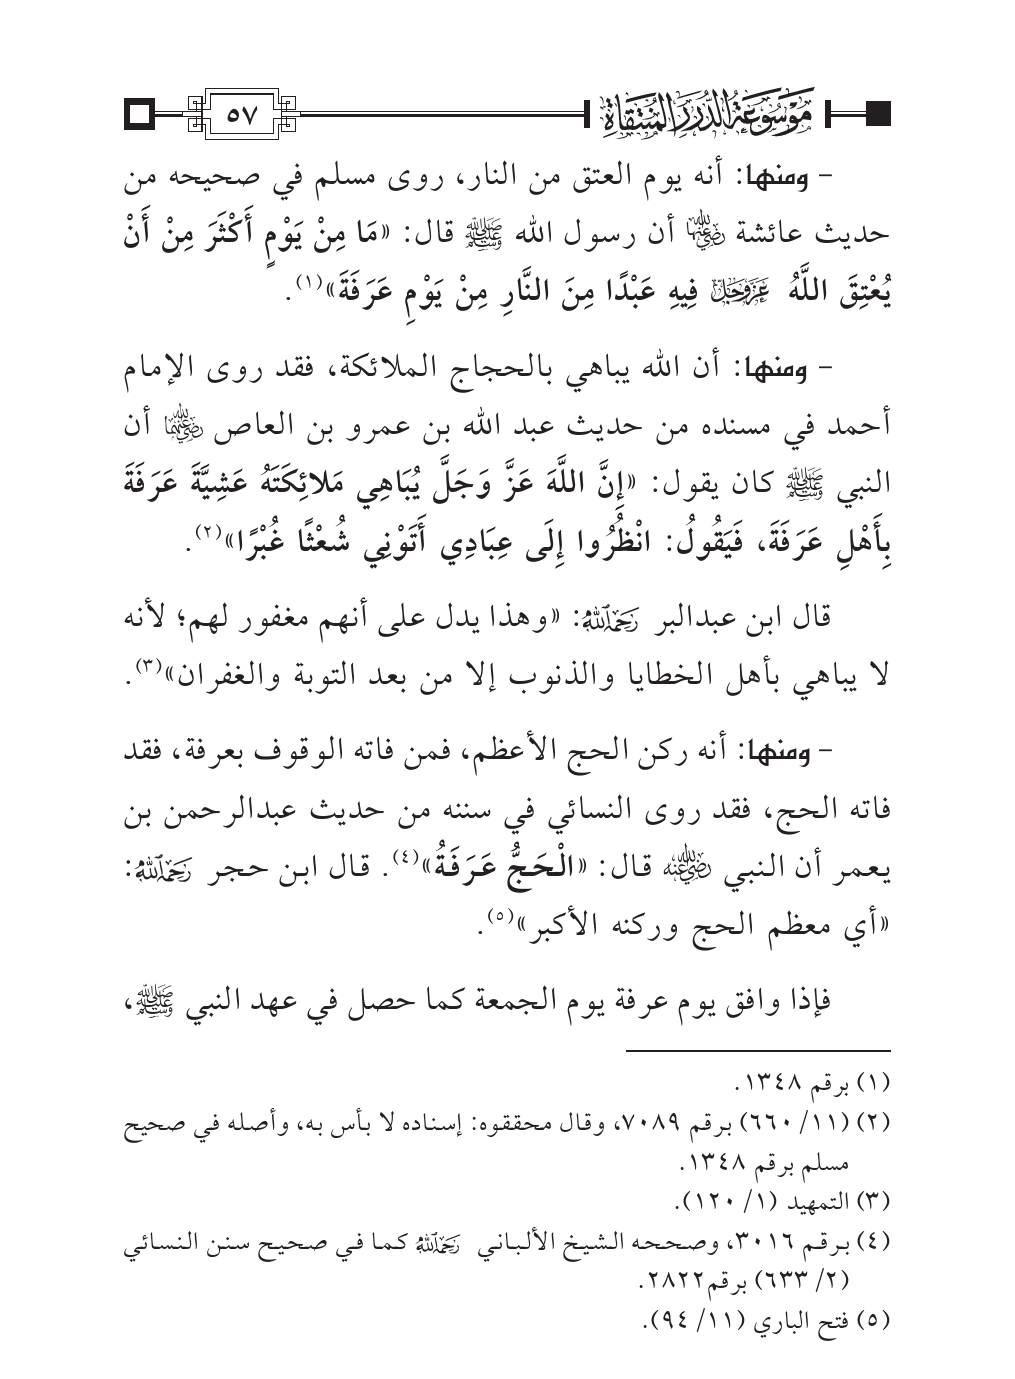 موسوعة الدرر المنتقاة
٥٧
– ومنها: أنه يوم العتق من النار، روى مسلم في صحيحه من
حديث عائشة رضي الله عنها أن رسول الله ﷺ قال: «مَا مِنْ يَوْمٍ أَكْثَرَ مِنْ أَنْ
يُعْتِقَ اللَّهُ عَزَّوَجَلَّ فِيهِ عَبْدًا مِنَ النَّارِ مِنْ يَوْمِ عَرَفَةَ»(١).
– ومنها: أن الله يباهي بالحجاج الملائكة، فقد روى الإمام
أحمد في مسنده من حديث عبد الله بن عمرو بن العاص رضي الله عنهما أن
النبي ﷺ كان يقول: «إِنَّ اللَّهَ عَزَّ وَجَلَّ يُبَاهِي مَلائِكَتَهُ عَشِيَّةَ عَرَفَةَ
بِأَهْلِ عَرَفَةَ، فَيَقُولُ: انْظُرُوا إِلَى عِبَادِي أَتَوْنِي شُعْثًا غُبْرًا»(٢).
قال ابن عبدالبر رحمه الله: «وهذا يدل على أنهم مغفور لهم؛ لأنه
لا يباهي بأهل الخطايا والذنوب إلا من بعد التوبة والغفران»(٣).
– ومنها: أنه ركن الحج الأعظم، فمن فاته الوقوف بعرفة، فقد
فاته الحج، فقد روى النسائي في سننه من حديث عبدالرحمن بن
يعمر أن النبي رضي الله عنه قال: «الْحَجُّ عَرَفَةُ»(٤). قال ابن حجر رحمه الله:
«أي معظم الحج وركنه الأكبر»(٥).
فإذا وافق يوم عرفة يوم الجمعة كما حصل في عهد النبي ﷺ،
(١) برقم ١٣٤٨.
(٢) (١١/ ٦٦٠) برقم ٧٠٨٩، وقال محققوه: إسناده لا بأس به، وأصله في صحيح
مسلم برقم ١٣٤٨.
(٣) التمهيد (١/ ١٢٠).
(٤) برقم ٣٠١٦، وصححه الشيخ الألباني رحمه الله كما في صحيح سنن النسائي
(٢/ ٦٣٣) برقم٢٨٢٢.
(٥) فتح الباري (١١/ ٩٤).